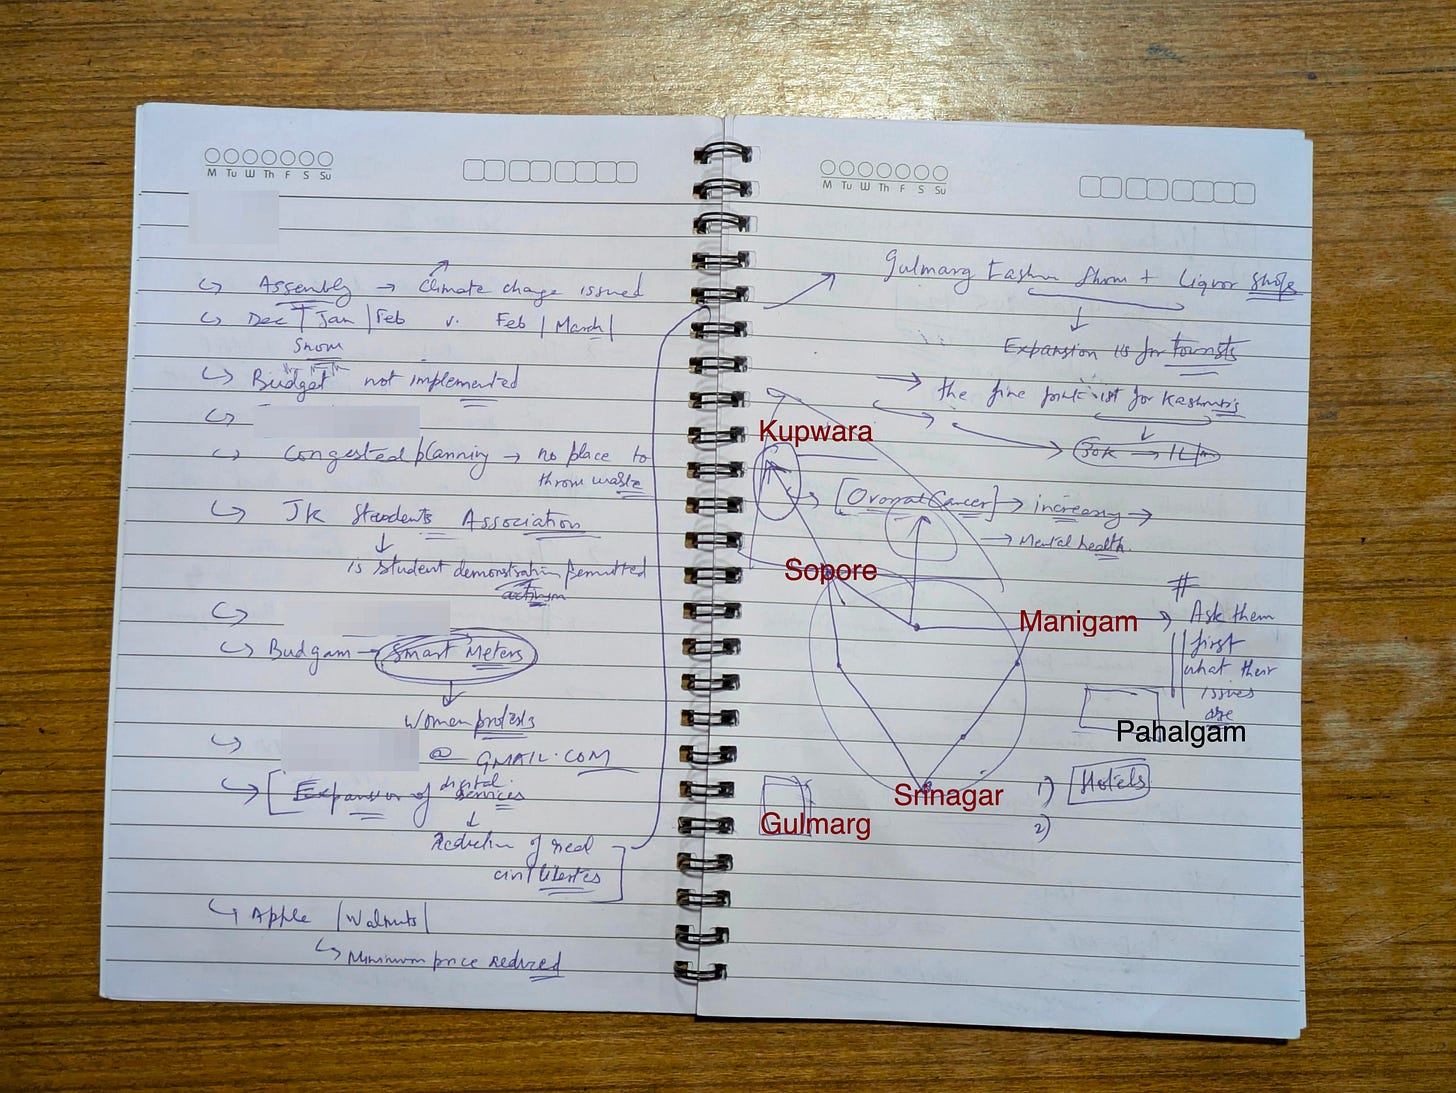 M Tu W Th F S Su
Assembly → Climate change issued
Dec | Jan | Feb v. Feb | March |
Snow
Budget not implemented
Congested planning → no place to
throw waste
JK Students Association
is student demonstration permitted
Budgam → Smart Meters
Women protests
@ GMAIL.COM
Expansion of digital services
Reduction of real
civil liberties
Apple | Walnuts |
Minimum price reduced
M Tu W Th F S Su
Gulmarg Fashion Show + Liquor Shops
Expansion is for tourists
the fine print: ist for Kashmiris
30K → 1L
Kupwara
[Ovarral Cancer] → increasing →
→ Mental health.
Sopore
#
Manigam
→ Ask them
first
what their
issues
are
Pahalgam
Srinagar
1) Hotels
Gulmarg
2)